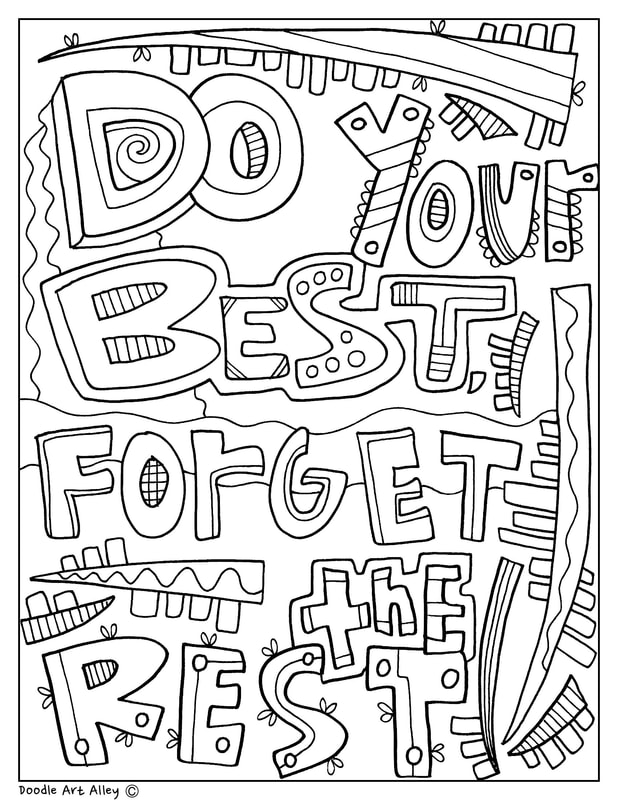 DO YOUr
BEST,
FOrGET
thE
REST!
Doodle Art Alley ©